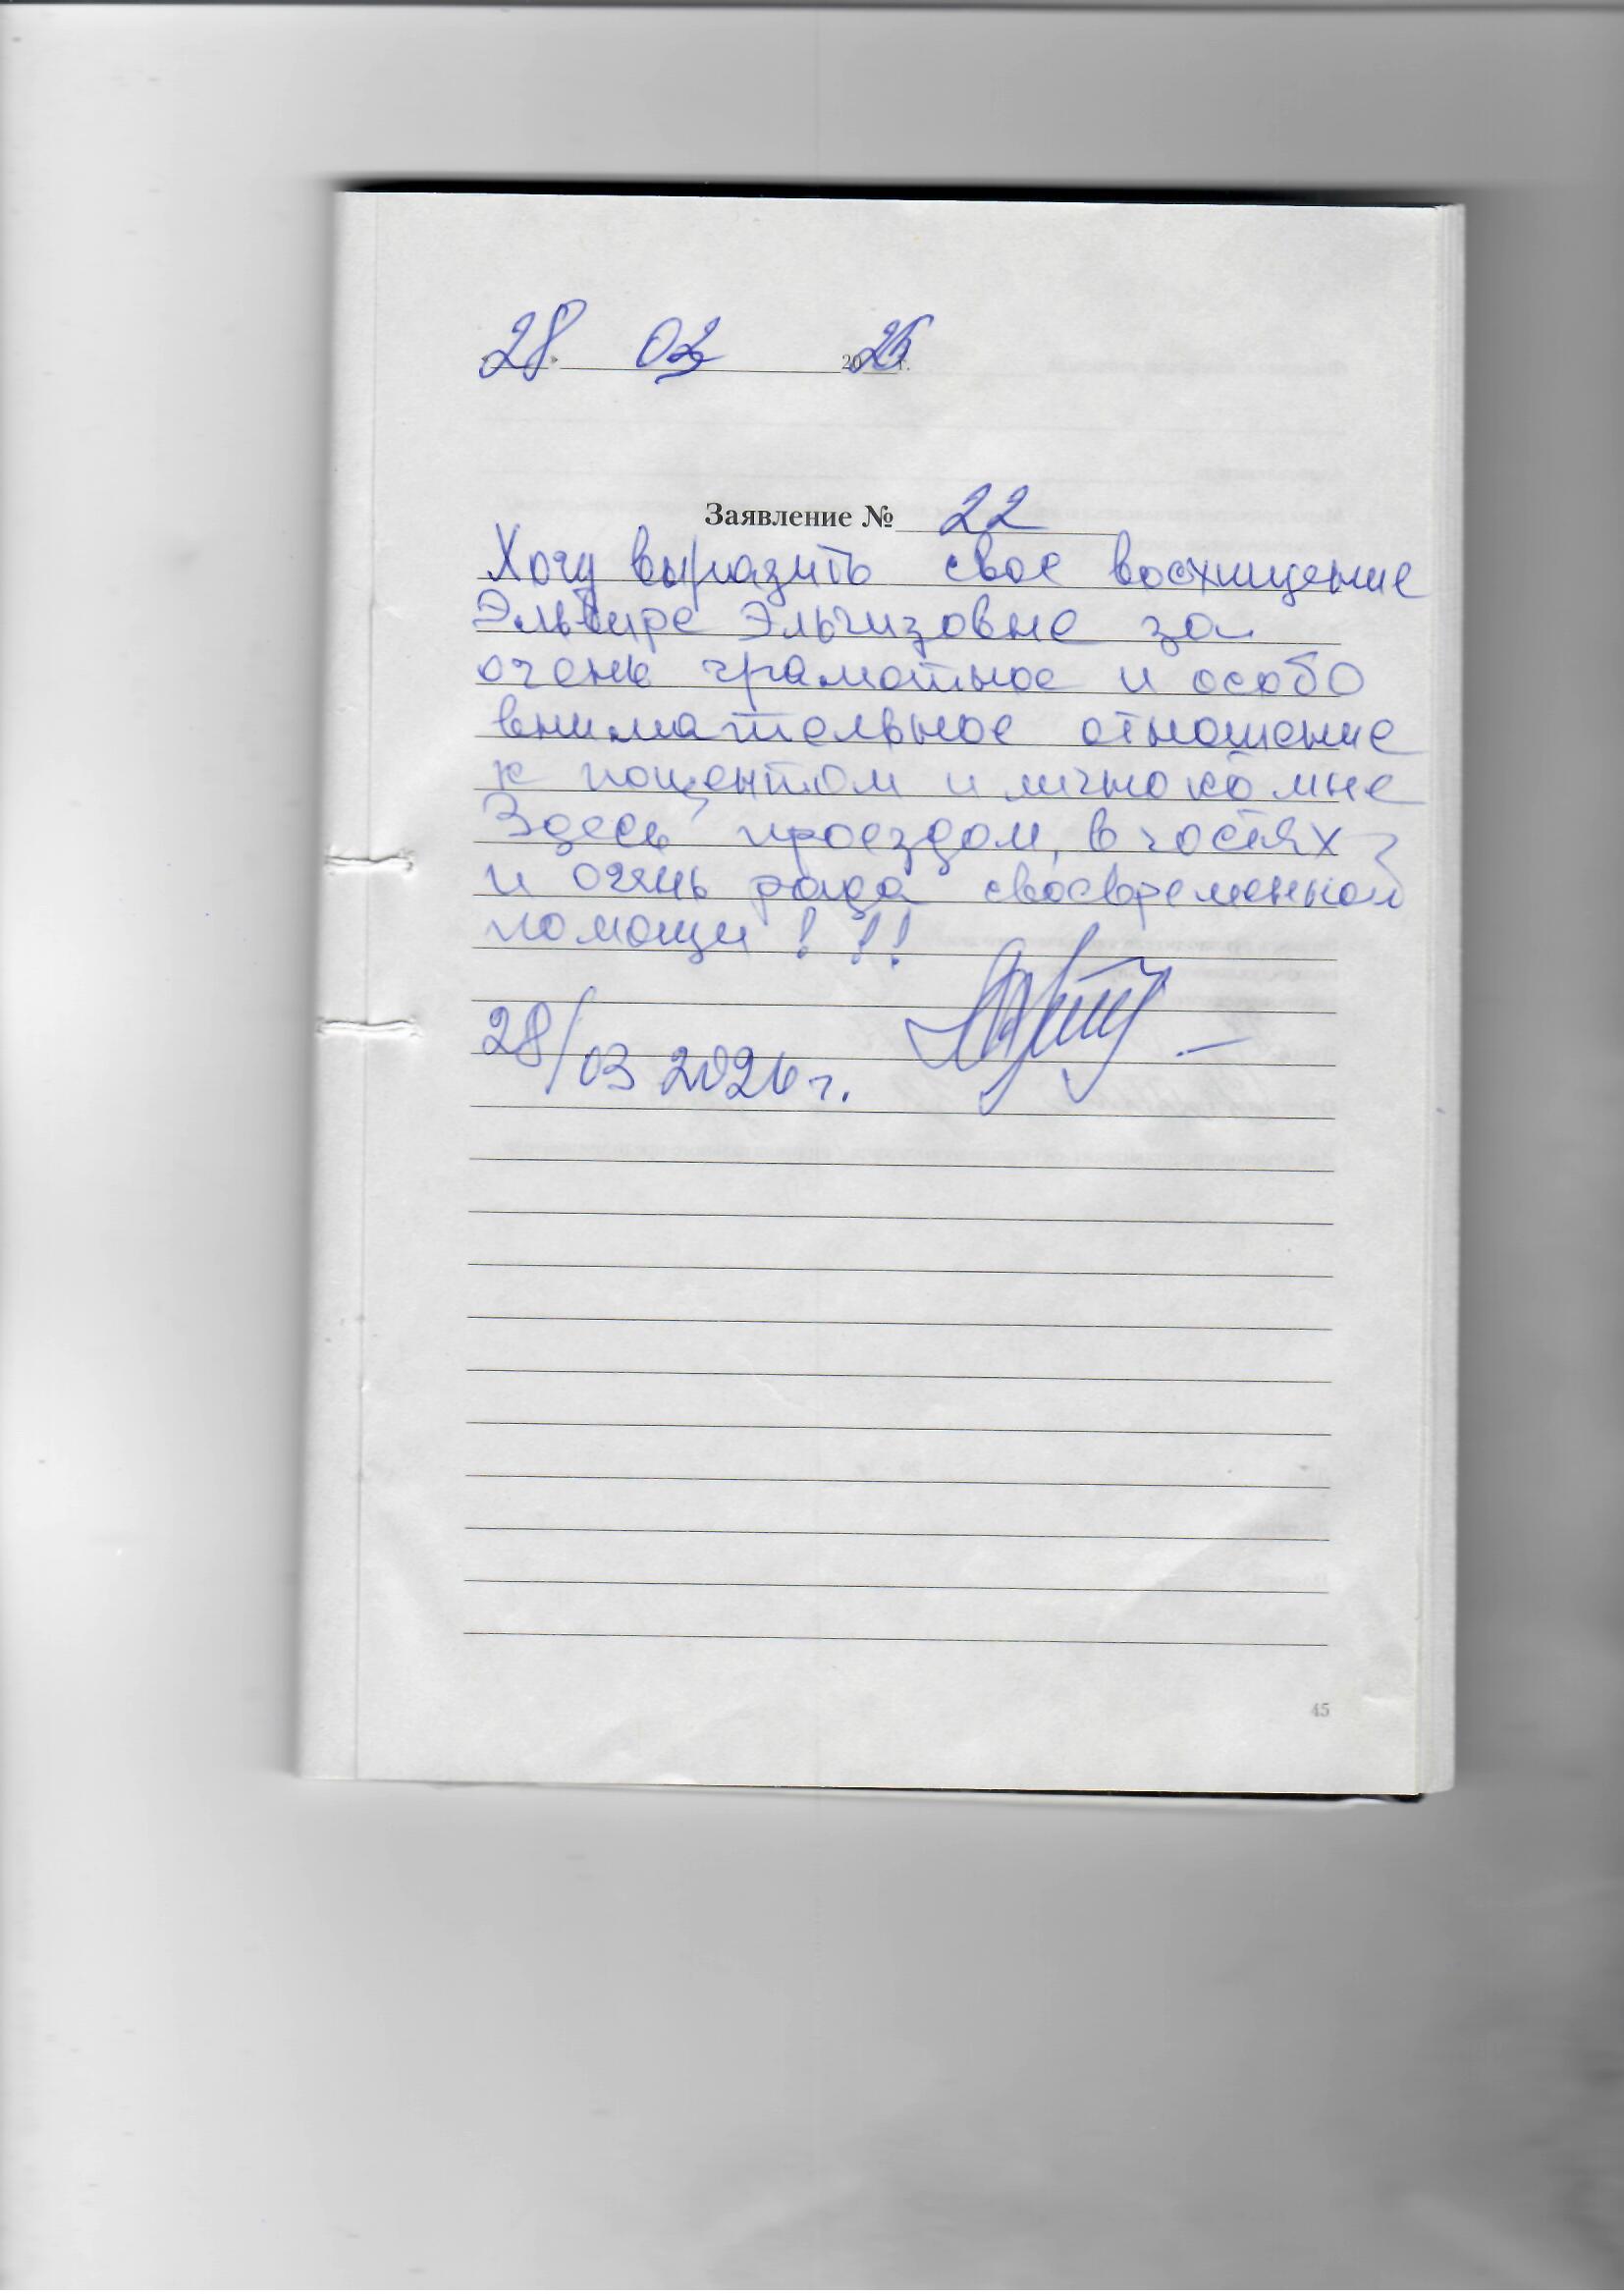 «28» 03 2026 г.
Заявление № 22
Хочу выразить свое восхищение
Эльвире Эльгизовне за
очень грамотное и особо
внимательное отношение
к поциентом и лично ко мне
Здесь проездом, в гостях
и очень рада своевременной
помощи ! !!
28/03 2026 г.
45